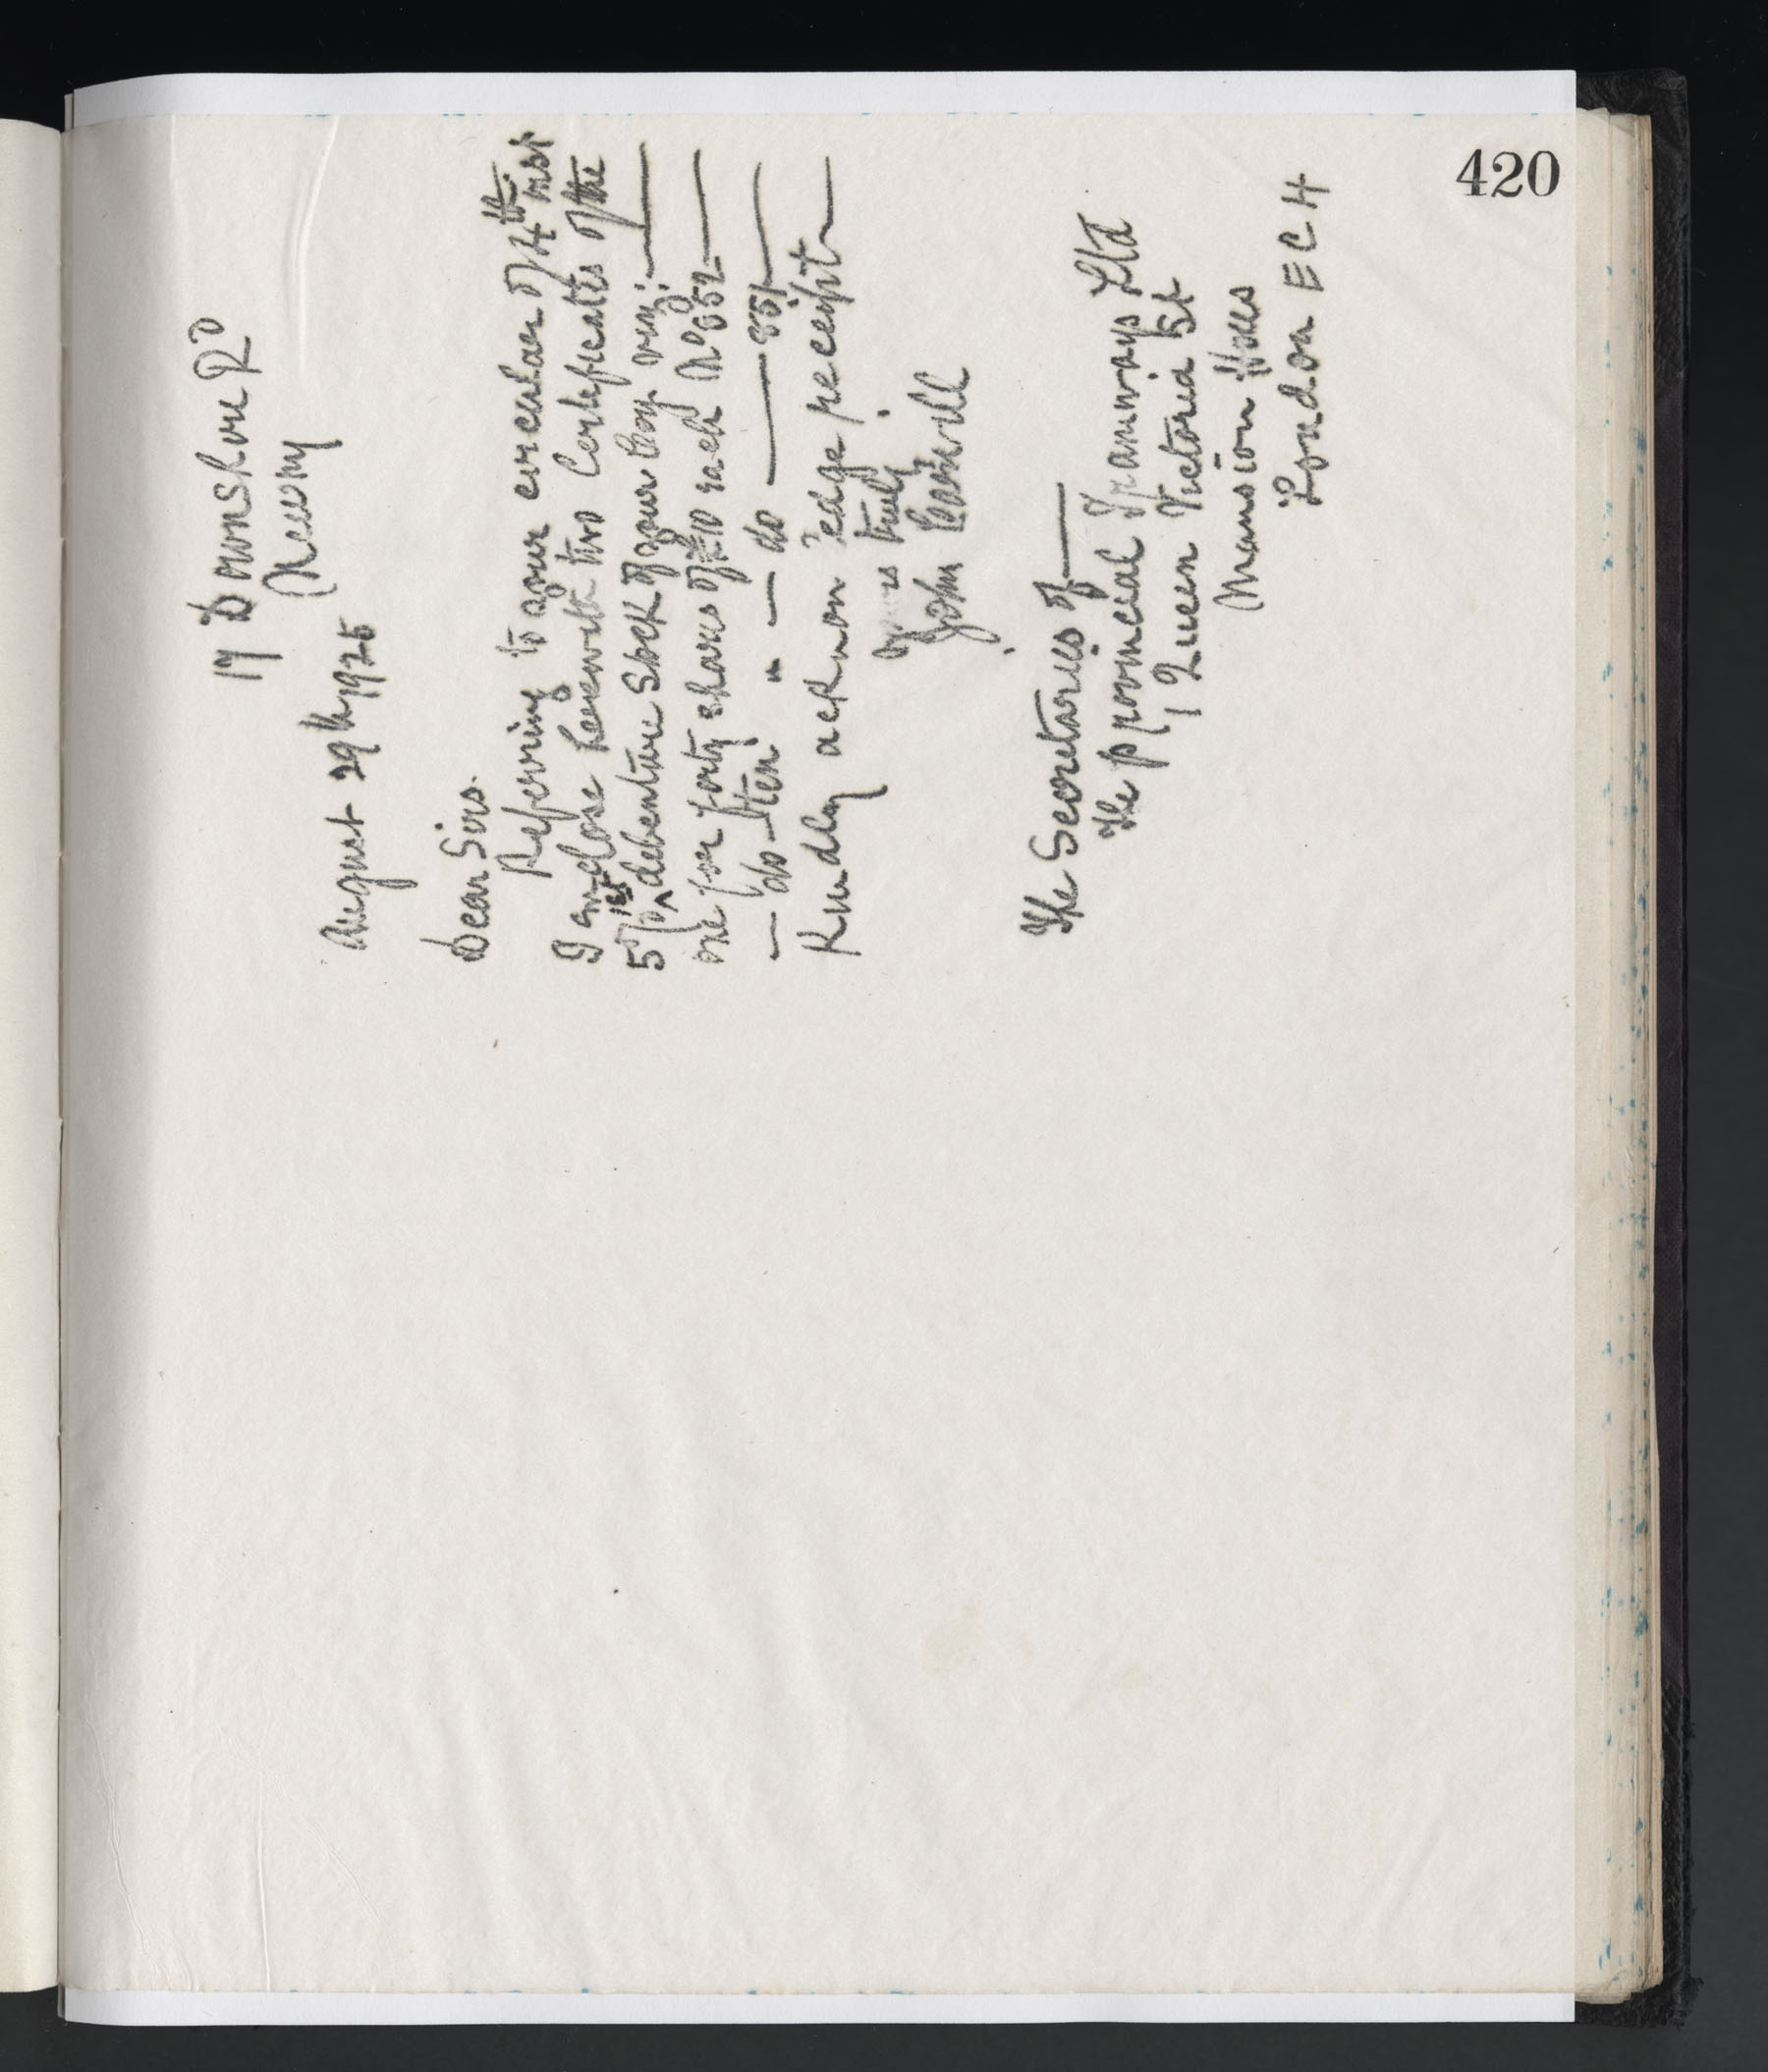 420
17 Downshire Rd
Newry
August 29th 1925
Dear Sirs.
Referring to your circular of 4th inst
I enclose herewith two Certificates of the
5 % 1st debenture Stock of your Coy viz:
one for forty shares of £10 each No 552
— do — ten " — do — 851
Kindly acknowledge receipt
Yours truly
John
The Secretaries of
The provincial Tramways Ltd
1 Queen Victoria St
Mansion
London E C 4